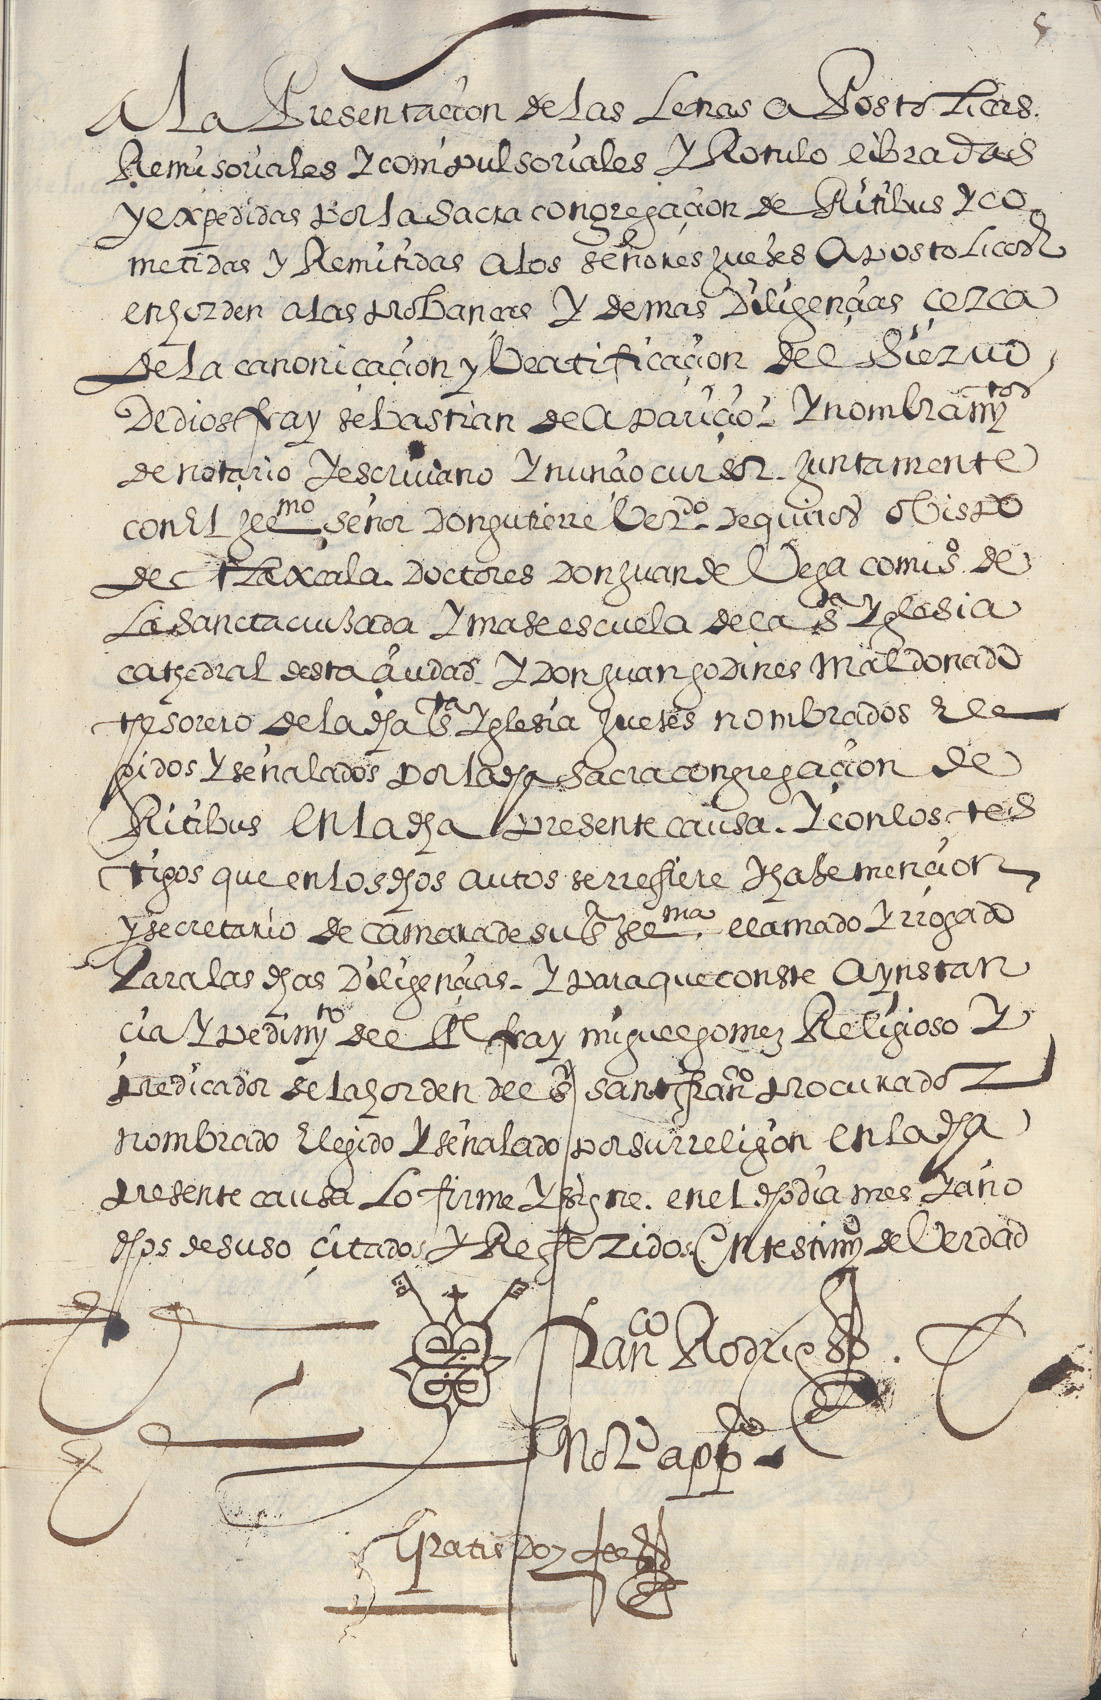 A La Presentacion de las Letras aPostolicas.
Remisoriales y compulsoriales y Rotulo libradas
y expedidas por la Sacra congregaçion de Ritibus y co
metidas y Remitidas a los señores Jueses Apostolicos
en horden a las probancas y demas Diligençias çerca
de la canoniçaçion y beatificaçion del Sieruo
De dios fray sebastian de Apariçio y nombramytos
de notario y escriuano y nunçio cursor. Juntamente
con El Yllmo señor Don gutierre berdo de quiros obispo
de tlaxcala. Doctores Don Juan de Vega comiso de
La Sancta cruzada y maseescuela de la sta Yglesia
cathedral desta çiudad y Don Juan godines Maldonado
thesorero de la dha sta Yglesia Jueses nombrados Ele
gidos y señalados por la dha Sacra congregaçion de
Ritibus En la dha presente causa. Y con los tes
tigos que en los dhos autos se rrefiere y hase mençion
y secretario de camara de su sa Yllma. llamado y rrogado
Para las dhas Diligençias. Y para que conste A ynstan
cia y pedimyto del Pe fray miguel gomez Religioso y
predicador de la horden del sr sant franco procurador
nombrado Elegido y señalado por su rreligion en la dha
presente causa Lo firme y signe. en el dho dia mes y año
dhos de suso çitados y Referidos En testimyo de Verdad
Franco Rodrigs.
Noto appco
Gratis Doy fee